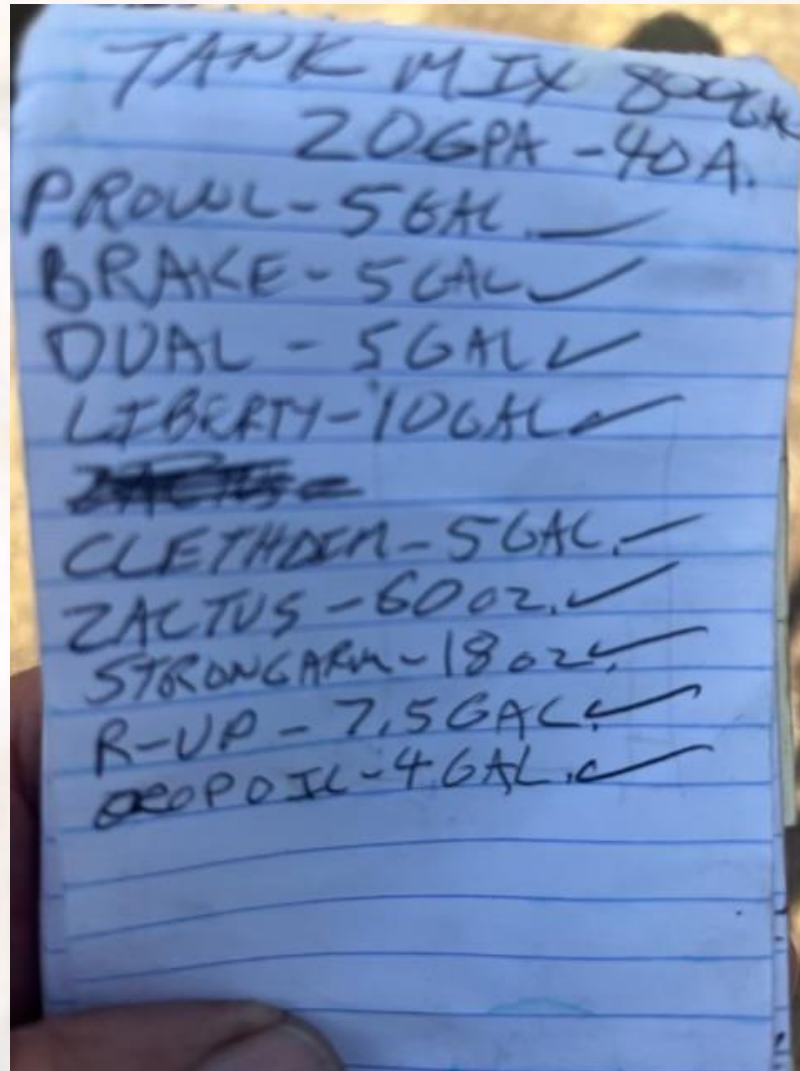 TANK MIX 800GAL
20GPA - 40A.
PROWL - 5 GAL.
BRAKE - 5 GAL
DUAL - 5 GAL
LIBERTY - 10 GAL
CLETHDIM - 5 GAL.
ZACTUS - 60 oz.
STRONGARM - 18 oz.
R-UP - 7.5 GAL.
CROPOIL - 4 GAL.